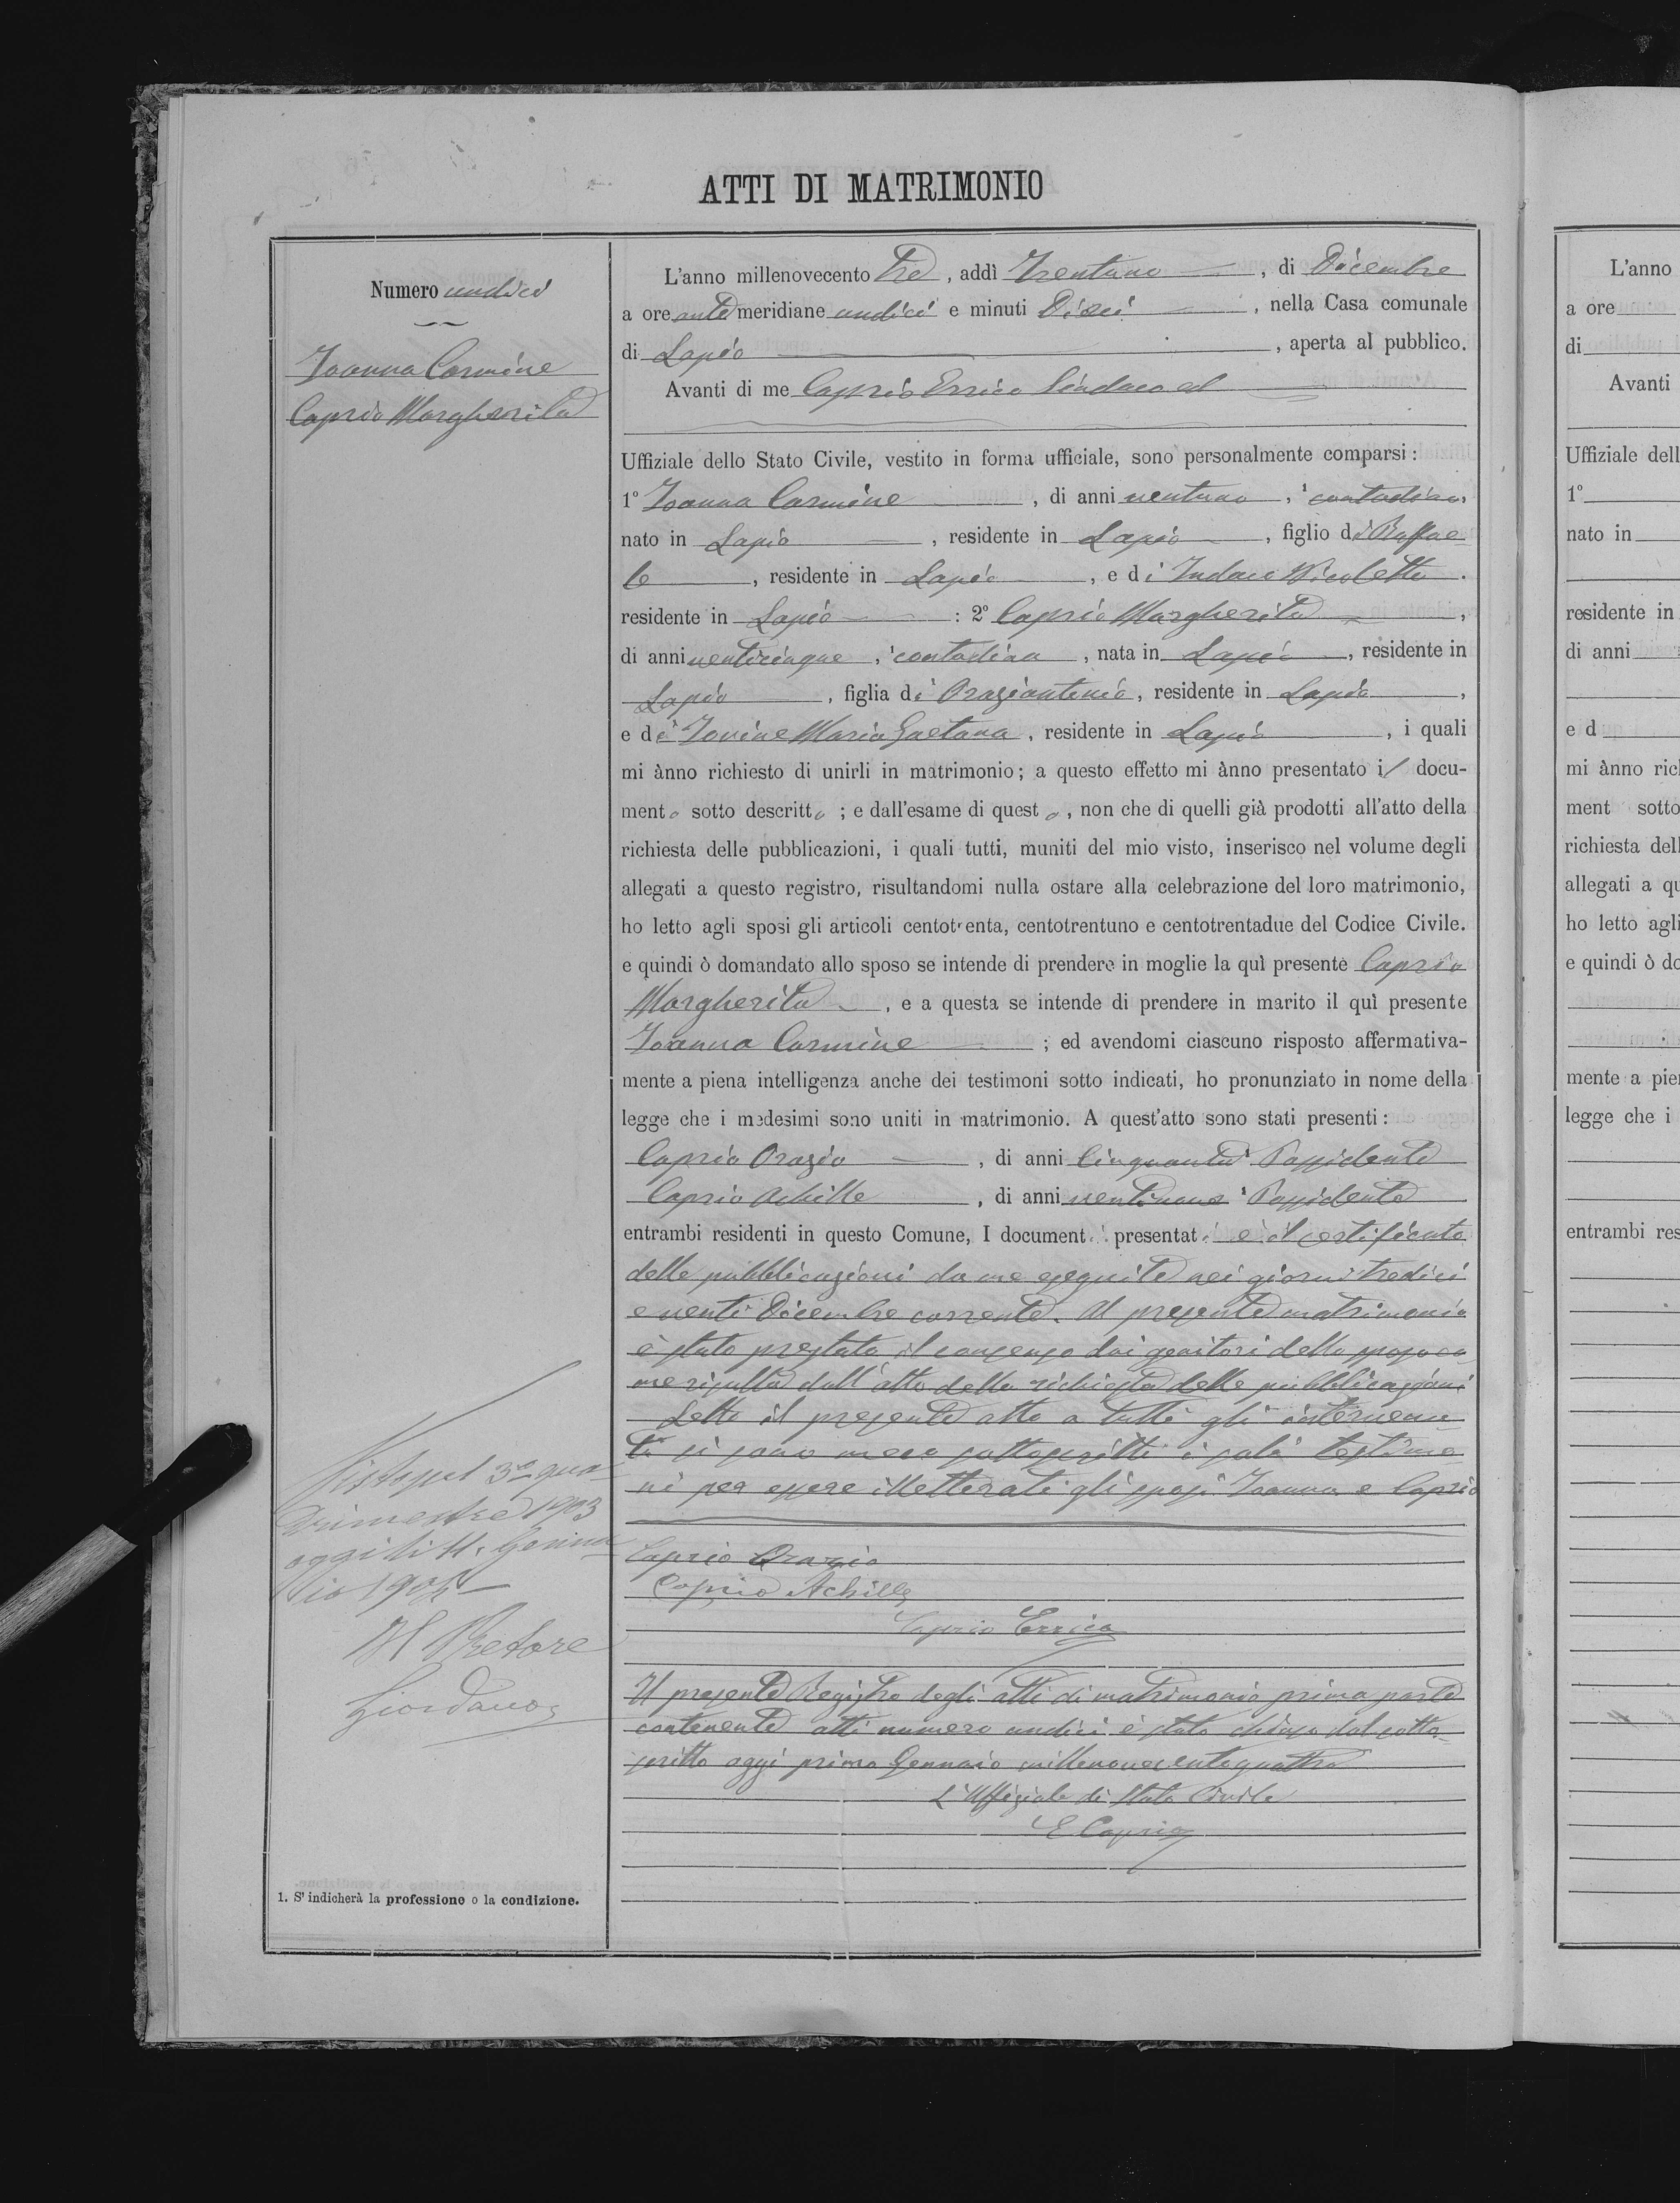 ATTI DI MATRIMONIO
Numero undici
Ioanna Carmine
Caprio Margherita
L'anno millenovecento tre, addì Trentuno, di Dicembre
a ore ante meridiane undici e minuti Dieci, nella Casa comunale
di Lapio, aperta al pubblico.
Avanti di me Caprio Errico Sindaco ed
Uffiziale dello Stato Civile, vestito in forma ufficiale, sono personalmente comparsi:
1º Ioanna Carmine, di anni ventuno, ¹ contadino,
nato in Lapio, residente in Lapio, figlio di Raffae-
le, residente in Lapio, e di Indaco Nicoletta.
residente in Lapio: 2º Caprio Margherita,
di anni venticinque, ¹ contadina, nata in Lapio, residente in
Lapio, figlia di Oraziantonio, residente in Lapio,
e di Iovine Maria Gaetana, residente in Lapio, i quali
mi ànno richiesto di unirli in matrimonio; a questo effetto mi ànno presentato il docu-
mento sotto descritto; e dall'esame di questo, non che di quelli già prodotti all'atto della
richiesta delle pubblicazioni, i quali tutti, muniti del mio visto, inserisco nel volume degli
allegati a questo registro, risultandomi nulla ostare alla celebrazione del loro matrimonio,
ho letto agli sposi gli articoli centotrenta, centotrentuno e centotrentadue del Codice Civile.
e quindi ò domandato allo sposo se intende di prendere in moglie la quì presente Caprio
Margherita, e a questa se intende di prendere in marito il quì presente
Ioanna Carmine; ed avendomi ciascuno risposto affermativa-
mente a piena intelligenza anche dei testimoni sotto indicati, ho pronunziato in nome della
legge che i medesimi sono uniti in matrimonio. A quest'atto sono stati presenti:
Caprio Orazio, di anni Cinquanta ¹ Possidente
Caprio Achille, di anni ventinove ¹ Possidente
entrambi residenti in questo Comune, I documenti presentati è il certificato
delle pubblicazioni da me eseguite nei giorni tredici
e venti Dicembre corrente. Al presente matrimonio
è stato prestato il consenso dai genitori dello sposo co
me risulta dall'atto della richiesta delle pubblicazioni
Letto il presente atto a tutti gli intervenu
ti si sono meco sottoscritti i soli testimo
ni per essere illetterati gli sposi Ioanna e Caprio
Caprio Orazio
Caprio Achille
Caprio Errico
Il presente Registro degli atti di matrimonio prima parte
contenente atti numero undici è stato chiuso dal sotto-
scritto oggi primo Gennaio millenovecentoquattro
L'Uffiziale di Stato Civile
E Caprio
Visto pel 3º qua-
drimestre 1903
oggi li 11. Genna
io 1904
Il Pretore
Giordano
1. S'indicherà la professione o la condizione.
L'anno
a ore
di
Avanti
Uffiziale dell
1º
nato in
residente in
di anni
e d
mi ànno rich
ment sotto
richiesta dell
allegati a qu
ho letto agli
e quindi ò do
mente a pie
legge che i
entrambi res